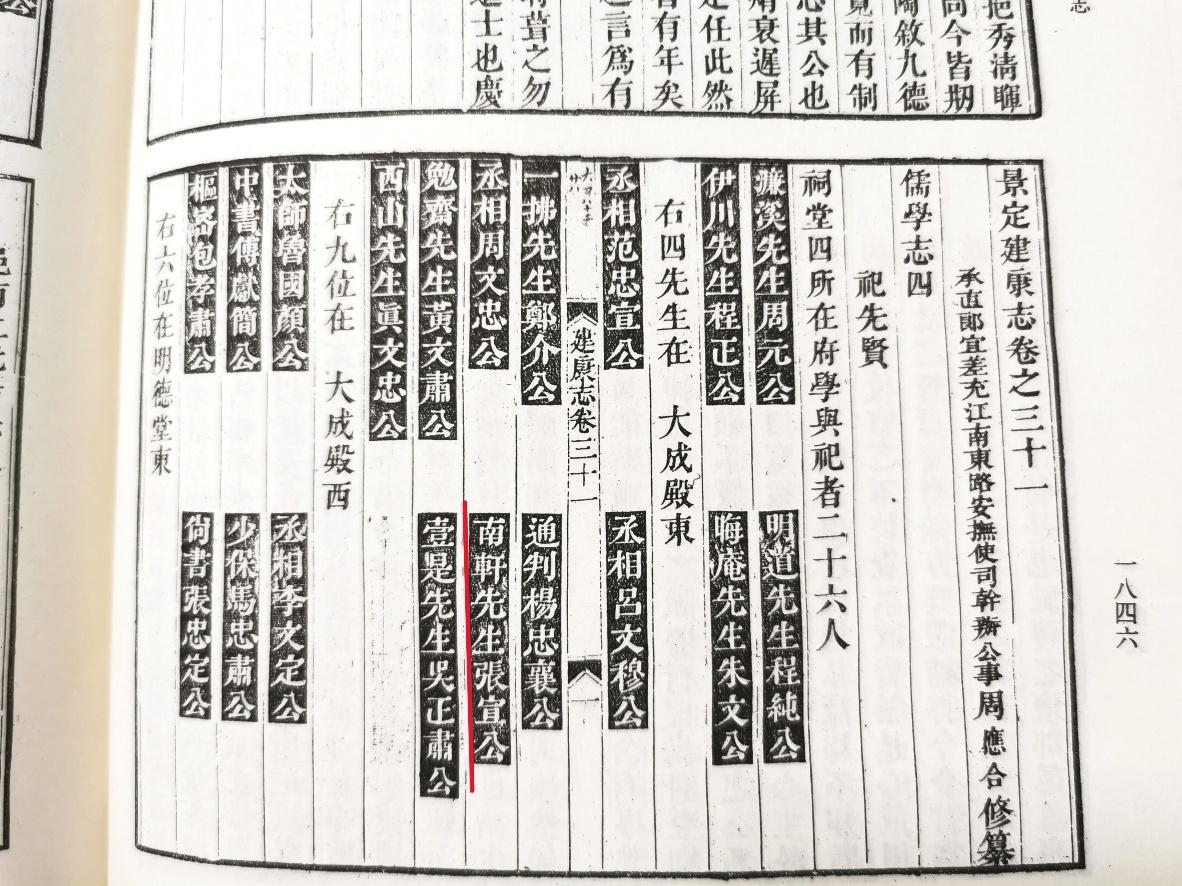 志
挹秀清暉
同今皆刱
陶敘九德
寬而有制
志其公也
衰遲屏
定任此然
者有年矣
之言爲有
聾之勿
進士也慶
景定建康志卷之三十一
承直郎宜差充江南東路安撫使司幹辦公事周應合修纂
儒學志四
祀先賢
祠堂四所在府學與祀者二十六人
濂溪先生周元公 明道先生程純公
伊川先生程正公 晦庵先生朱文公
右四先生在 大成殿東
丞相范忠宣公 丞相呂文穆公
建康志卷三十一 一
一拂先生鄭介公 通判楊忠襄公
丞相周文忠公 南軒先生張宣公
勉齋先生黃文肅公 壹是先生吳正肅公
西山先生眞文忠公
右九位在 大成殿西
太師魯國顏公 丞相李文定公
中書傅獻簡公 少保馬忠肅公
樞密包孝肅公 尙書張忠定公
右六位在明德堂東
一八四六